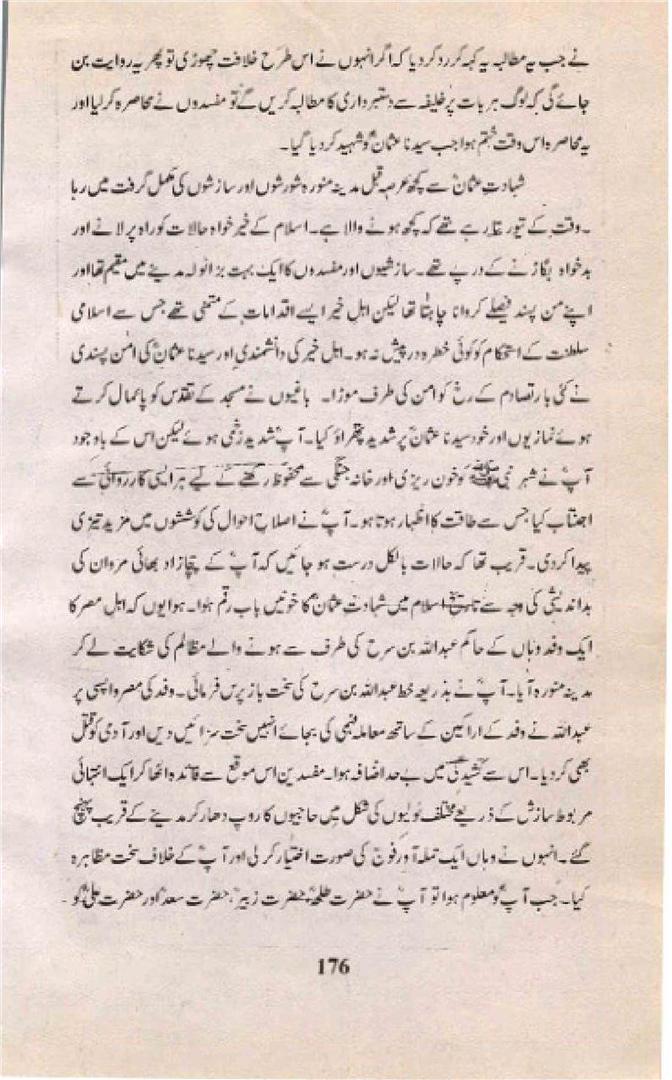 نے جب یہ مطالبہ یہ کہہ کر رد کر دیا کہ اگر انہوں نے اس طرح خلافت چھوڑی تو پھر یہ روایت بن
جائے گی کہ لوگ ہر بات پر خلیفہ سے دستبرداری کا مطالبہ کریں گے تو مفسدوں نے محاصرہ کر لیا اور
یہ محاصرہ اس وقت ختم ہوا جب سیدنا عثمانؓ کو شہید کر دیا گیا۔
شہادتِ عثمانؓ سے کچھ عرصہ قبل مدینہ منورہ شورشوں اور سازشوں کی مکمل گرفت میں رہا
۔وقت کے تیور بتا رہے تھے کہ کچھ ہونے والا ہے۔ اسلام کے خیر خواہ حالات کو راہ پر لانے اور
بدخواہ بگاڑنے کے درپے تھے۔ سازشیوں اور مفسدوں کا ایک بہت بڑا ٹولہ مدینے میں مقیم تھا اور
اپنے من پسند فیصلے کروانا چاہتا تھا لیکن اہلِ خیر ایسے اقدامات کے متمنی تھے جس سے اسلامی
سلطنت کے استحکام کو کوئی خطرہ درپیش نہ ہو۔ اہل خیر کی دانشمندی اور سیدنا عثمانؓ کی امن پسندی
نے کئی بار تصادم کے رخ کو امن کی طرف موڑا۔ باغیوں نے مسجد کے تقدس کو پائمال کرتے
ہوئے نمازیوں اور خود سیدنا عثمانؓ پر شدید پتھراؤ کیا۔ آپؓ شدید زخمی ہوئے لیکن اس کے باوجود
آپؓ نے شہرِ نبی ﷺ کو خون ریزی اور خانہ جنگی سے محفوظ رکھنے کے لیے ہر ایسی کارروائی سے
اجتناب کیا جس سے طاقت کا اظہار ہوتا ہو۔ آپؓ نے اصلاح احوال کی کوششوں میں مزید تیزی
پیدا کر دی۔ قریب تھا کہ حالات بالکل درست ہو جائیں کہ آپؓ کے چچازاد بھائی مروان کی
بداندیشی کی وجہ سے تاریخ اسلام میں شہادتِ عثمانؓ کا خونیں باب رقم ہوا۔ ہوا یوں کہ اہل مصر کا
ایک وفد وہاں کے حاکم عبداللہ بن سرح کی طرف سے ہونے والے مظالم کی شکایت لے کر
مدینہ منورہ آیا۔ آپؓ نے بذریعہ خط عبداللہ بن سرح کی سخت باز پرس فرمائی۔ وفد کی مصر واپسی پر
عبداللہ نے وفد کے اراکین کے ساتھ معاملہ فہمی کی بجائے انہیں سخت سزائیں دیں اور آدمی کو قتل
بھی کر دیا۔ اس سے کشیدگی میں بے حد اضافہ ہوا۔ مفسدین اس موقع سے فائدہ اٹھا کر ایک انتہائی
مربوط سازش کے ذریعے مختلف ٹولیوں کی شکل میں حاجیوں کا روپ دھار کر مدینے کے قریب پہنچ
گئے۔ انہوں نے وہاں ایک حملہ آور فوج کی صورت اختیار کر لی اور آپؓ کے خلاف سخت مظاہرہ
کیا۔ جب آپؓ کو معلوم ہوا تو آپؓ نے حضرت طلحہؓ، حضرت زبیرؓ، حضرت سعدؓ اور حضرت علیؓ کو
176